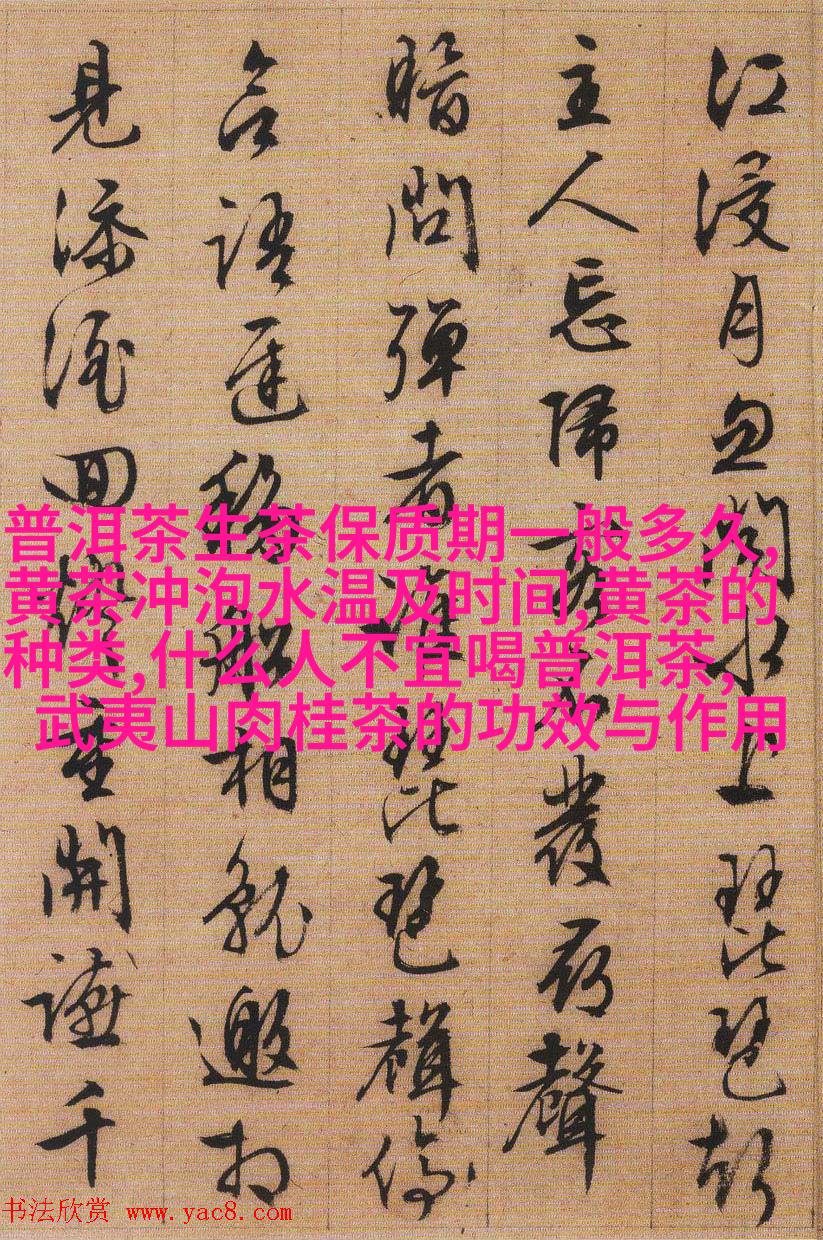 江浸月忽聞水上琵琶
主人忘歸客不發尋聲
暗問彈者誰琵琶聲停
語遲移船相就邀相
見添酒回燈重開讌千
普洱茶生茶保质期一般多久,
黄茶冲泡水温及时间,黄茶的
种类,什么人不宜喝普洱茶,
武夷山肉桂茶的功效与作用
书法欣赏 www.yac8.com